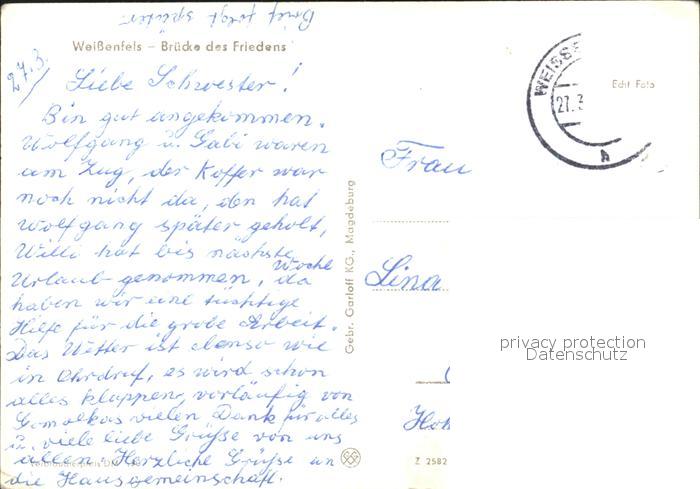 Brief folgt später.
Weißenfels – Brücke des Friedens
27.3.
Liebe Schwester!
Bin gut angekommen.
Wolfgang u. Gabi waren
am Zug, der Koffer war
noch nicht da, den hat
Wolfgang später geholt,
Willi hat bis nächste
Woche
Urlaub genommen, da
haben wir eine tüchtige
Hilfe für die grobe Arbeit.
Das Wetter ist ebenso wie
in Ohrdruf, es wird schon
alles klappen, vorläufig von
Gomolkas vielen Dank für alles
u. viele liebe Grüße von uns
allen. Herzliche Grüße an
die Hausgemeinschaft.
Gebr. Garloff KG., Magdeburg
WEISSE
27.3
A
Echt Foto
Frau
Lina
privacy protection
Datenschutz
Z 2582